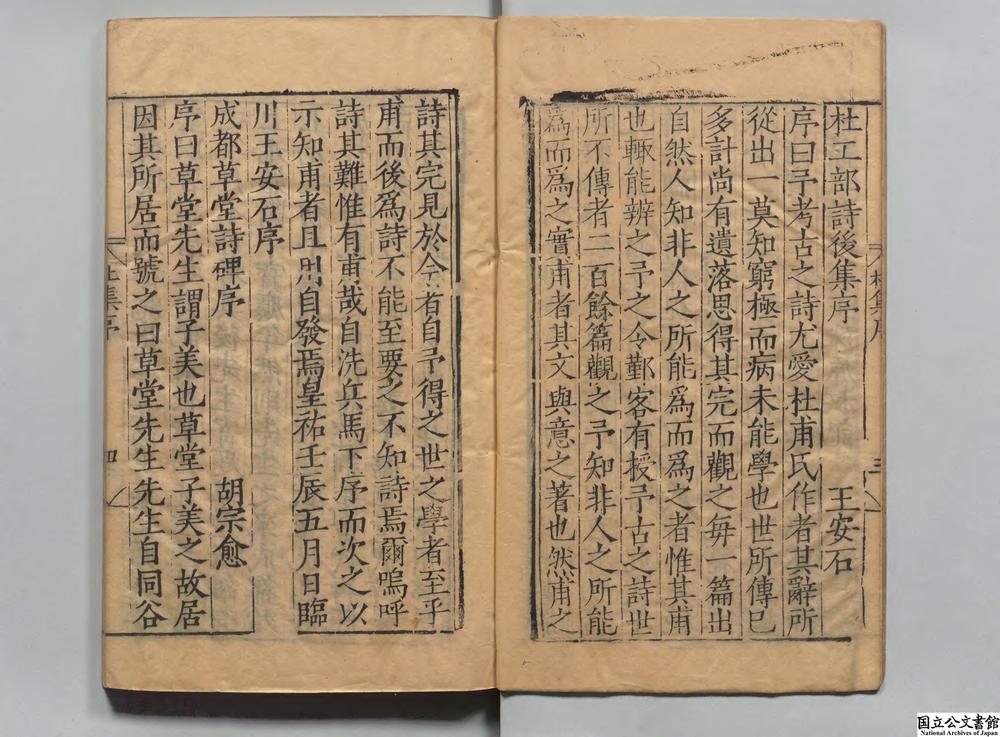 杜工部詩後集序 王安石
序曰予考古之詩尤愛杜甫氏作者其辭所
從出一莫知窮極而病未能學也世所傳已
多計尚有遺落思得其完而觀之每一篇出
自然人知非人之所能爲而爲之者惟其甫
也輒能辨之予之令鄞客有授予古之詩世
所不傳者二百餘篇觀之予知非人之所能
爲而爲之實甫者其文與意之著也然甫之
詩其完見於今者自予得之世之學者至乎
甫而後爲詩不能至要之不知詩焉爾嗚呼
詩其難惟有甫哉自洗兵馬下序而次之以
示知甫者且用自發焉皇祐壬辰五月日臨
川王安石序
成都草堂詩碑序 胡宗愈
序曰草堂先生謂子美也草堂子美之故居
因其所居而號之曰草堂先生先生自同谷
杜集序
三
四
国立公文書館
National Archives of Japan